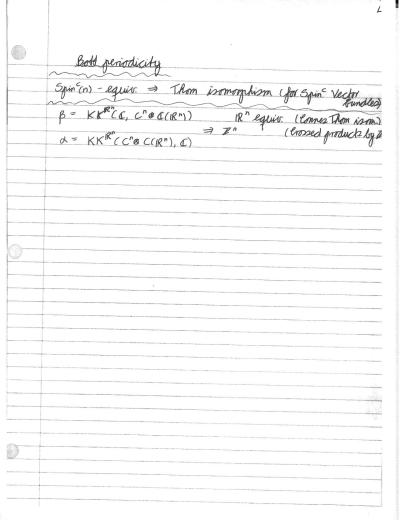 1
Bott periodicity
Spinᶜ(n) - equiv. ⇒ Thom isomorphism (for Spinᶜ Vector bundles)
β = KK^ℝⁿ(ℂ, Cⁿ ⊗ C(ℝⁿ)) ℝⁿ equiv. (Connes Thom isom)
⇒ ℤⁿ (Crossed products by
α = KK^ℝⁿ(Cⁿ ⊗ C(ℝⁿ), ℂ)